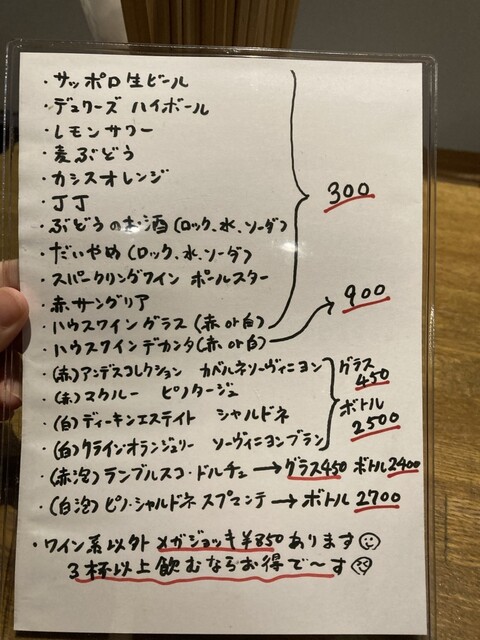 ・サッポロ生ビール
・デュワーズ ハイボール
・レモンサワー
・麦ぶどう
・カシスオレンジ
・丁丁
300
・ぶどうのお酒(ロック、水、ソーダ)
・だいやめ(ロック、水、ソーダ)
・スパークリングワイン ポールスター
・赤サングリア
900
・ハウスワイン グラス(赤or白)
・ハウスワインデカンタ(赤or白)
・(赤)アンデスコレクション カベルネソーヴィニヨン
グラス
450
・(赤)マクルー ピノタージュ
・(白)ディーキンエステイト シャルドネ
ボトル
2500
・(白)クラインオランジュリー ソーヴィニヨンブラン
・(赤泡)ランブルスコ・ドルチェ→グラス450 ボトル2400
・(白泡)ピノ・シャルドネ スプマンテ→ボトル2700
・ワイン系以外メガジョッキ¥850あります
3杯以上飲むならお得で〜す